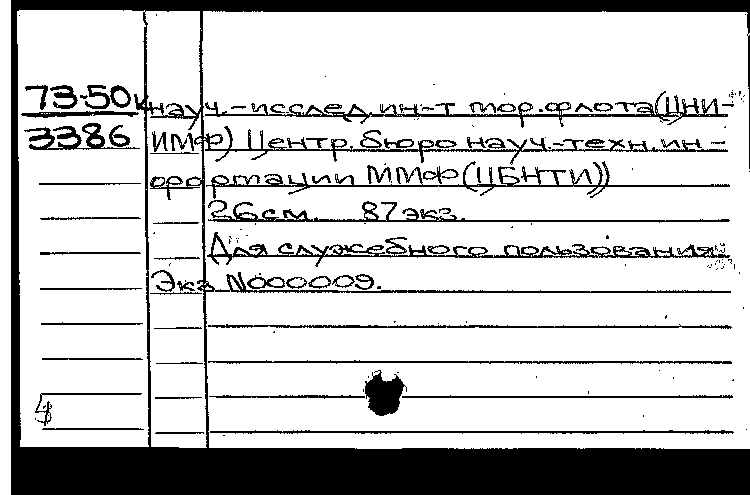 73-50к
3386
науч.-исслед. ин-т мор. флота (ЦНИ-
ИМФ) Центр. бюро науч.-техн. ин-
формации ММФ (ЦБНТИ))
26 см. 87 экз.
Для служебного пользования.
Экз N000009.